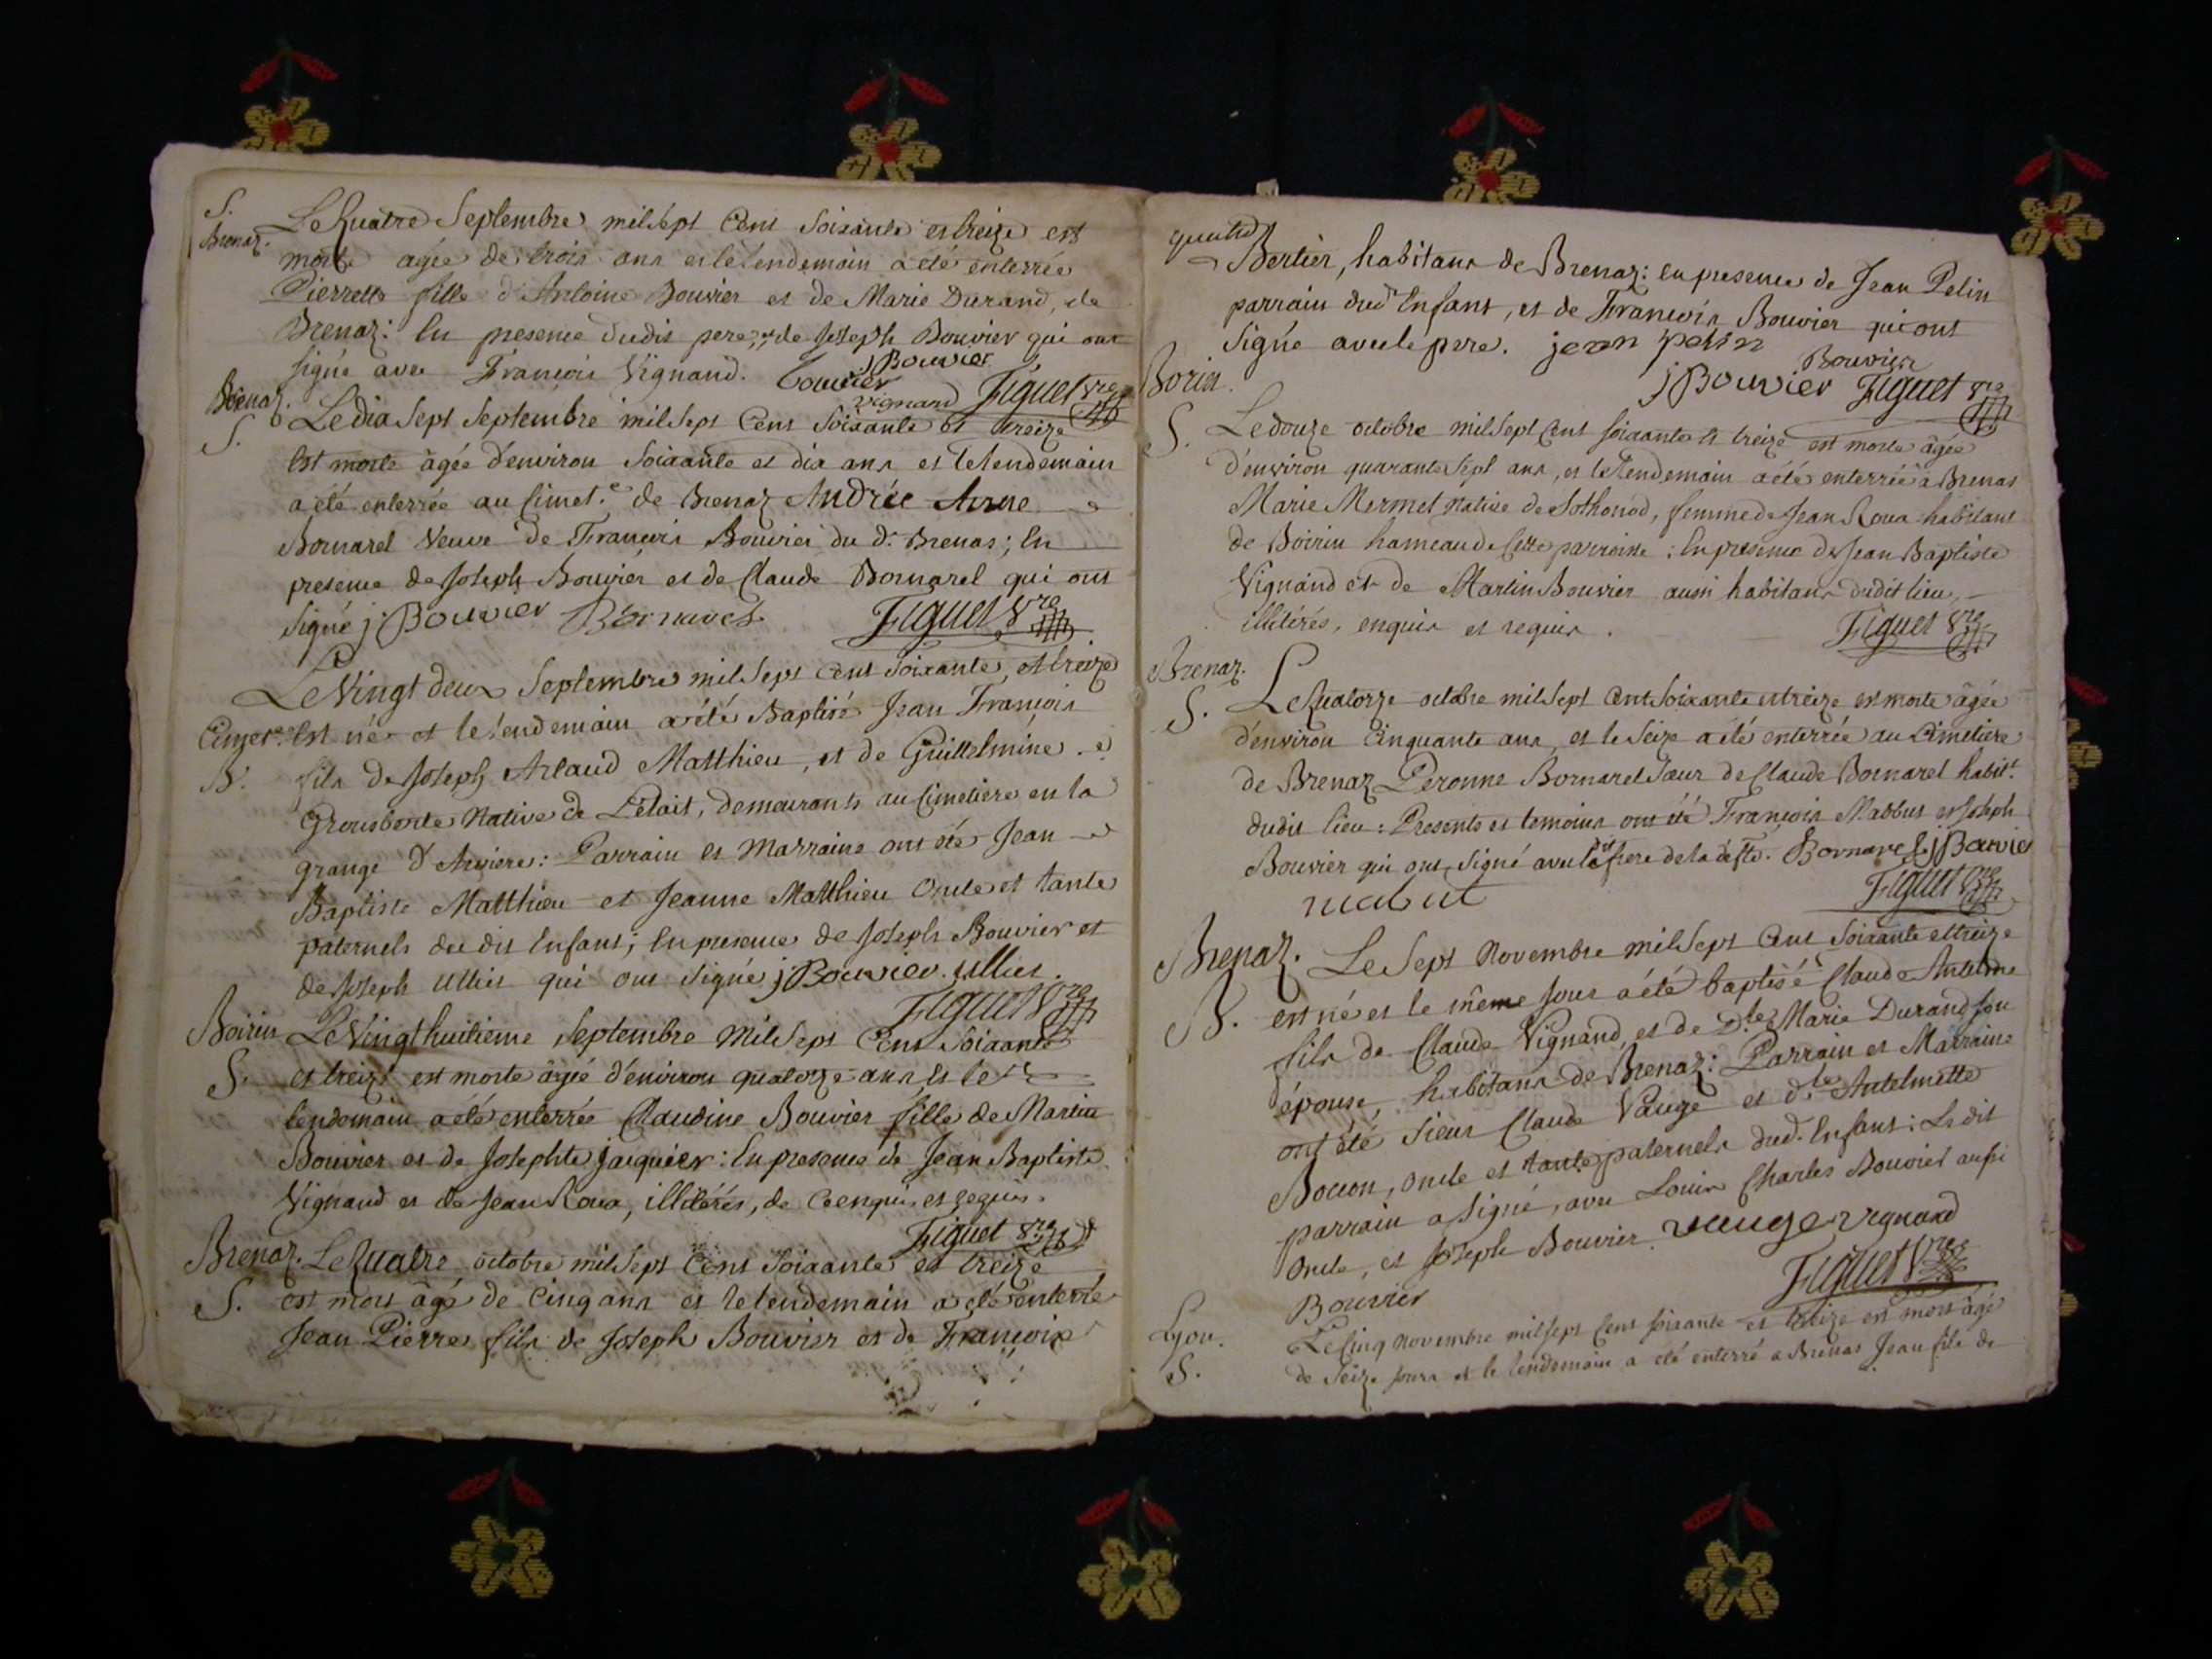 S.
Brenaz. Le Quatre Septembre mil sept Cent Soixante et treize est
morte agée de trois ans et le lendemain a été enterrée
Pierrette fille d'Antoine Bouvier et de Marie Durand, de
Brenaz: En presence dudit pere, et de Joseph Bouvier qui ont
signé avec François Vignand. Bouvier jBouvier
vignand Figuet Vre
Brenaz. Le dix sept Septembre mil sept Cent Soixante et treize
S. Est morte âgée d'environ Soixante et dix ans et le lendemain
a été enterrée au Cimet.e de Brenaz Andrée Anne
Bornarel Veuve de François Bouvier du d. Brenas; En
presence de Joseph Bouvier et de Claude Bornarel qui ont
signé jBouvier Bornarel Figuet Vre
Le Vingt deux Septembre mil sept Cent Soixante, et treize
Cimet.re Est né et le lendemain a été Baptisé Jean François
B. fils de Joseph Arlaud Matthieu, et de Guillelmine
Native de demeurants au Cimetiere en la
grange d'Arviere: Parrain et Marraine ont été Jean
Baptiste Matthieu et Jeanne Matthieu Oncle et tante
paternels du dit Enfant; En presence de Joseph Bouvier et
de Joseph Ulliet qui ont signé jBouvier. ulliet.
Figuet Vre
Boirin Le Vingt huitieme Septembre Mil Sept Cent Soixante
S. et treize est morte âgée d'environ quatorze ans et le
lendemain a été enterrée Claudine Bouvier fille de Martin
Bouvier et de Josephte jacquier: En presence de Jean Baptiste
Vignand et de Jean Roux, illitérés, de ce enquis et requis.
Figuet Vre
Brenaz. Le Quatre octobre mil sept Cent Soixante et treize
S. est mort âgé de Cinq ans et le lendemain a été enterré
Jean Pierre fils de Joseph Bouvier et de Françoise
Bertier, habitans de Brenaz: en presence de Jean Pelin
parrain dud. Enfant, et de François Bouvier qui ont
signé avec le pere. jean pelin
Bouvier
jBouvier Figuet Vre
Boirin.
S. Le douze octobre mil sept Cent soixante et treize est morte âgée
d'environ quarante sept ans, et le lendemain a été enterrée à Brenas
Marie Mermet Native de Sothonod, femme de Jean Roux habitant
de Boirin hameau de Cette parroisse: En presence de Jean Baptiste
Vignand et de Martin Bouvier aussi habitans dudit lieu,
illitérés, enquis et requis. Figuet Vre
Brenaz.
S. Le Quatorze octobre mil sept Cent Soixante et treize est morte âgée
d'environ Cinquante ans, et le Seize a été enterrée au Cimetiere
de Brenaz Peronne Bornarel Sœur de Claude Bornarel habit.t
dudit lieu: Presents et temoins ont été François Mabbut et Joseph
Bouvier qui ont signé avec led. frere de la defte. Bornarel jBouvier
mabut Figuet Vre
Brenaz. Le Sept Novembre mil sept Cent Soixante et treize
B. est né et le même jour a été baptisé Claude Antelme
fils de Claude Vignand, et de D.lle Marie Durand son
épouse, habitans de Brenaz: Parrain et Marraine
ont été Sieur Claude Vauge et d.lle Antelmette
Bouvon, oncle et tante paternels dud. Enfant: Ledit
parrain a signé, avec Louis Charles Bouvier aussi
Oncle, et Joseph Bouvier. vauge vignand
Figuet Vre
Bouvier
Lyon. Le Cinq Novembre mil sept Cent soixante et treize est mort âgé
S. de Seize jours et le lendemain a été enterré a Brenas Jean fils de